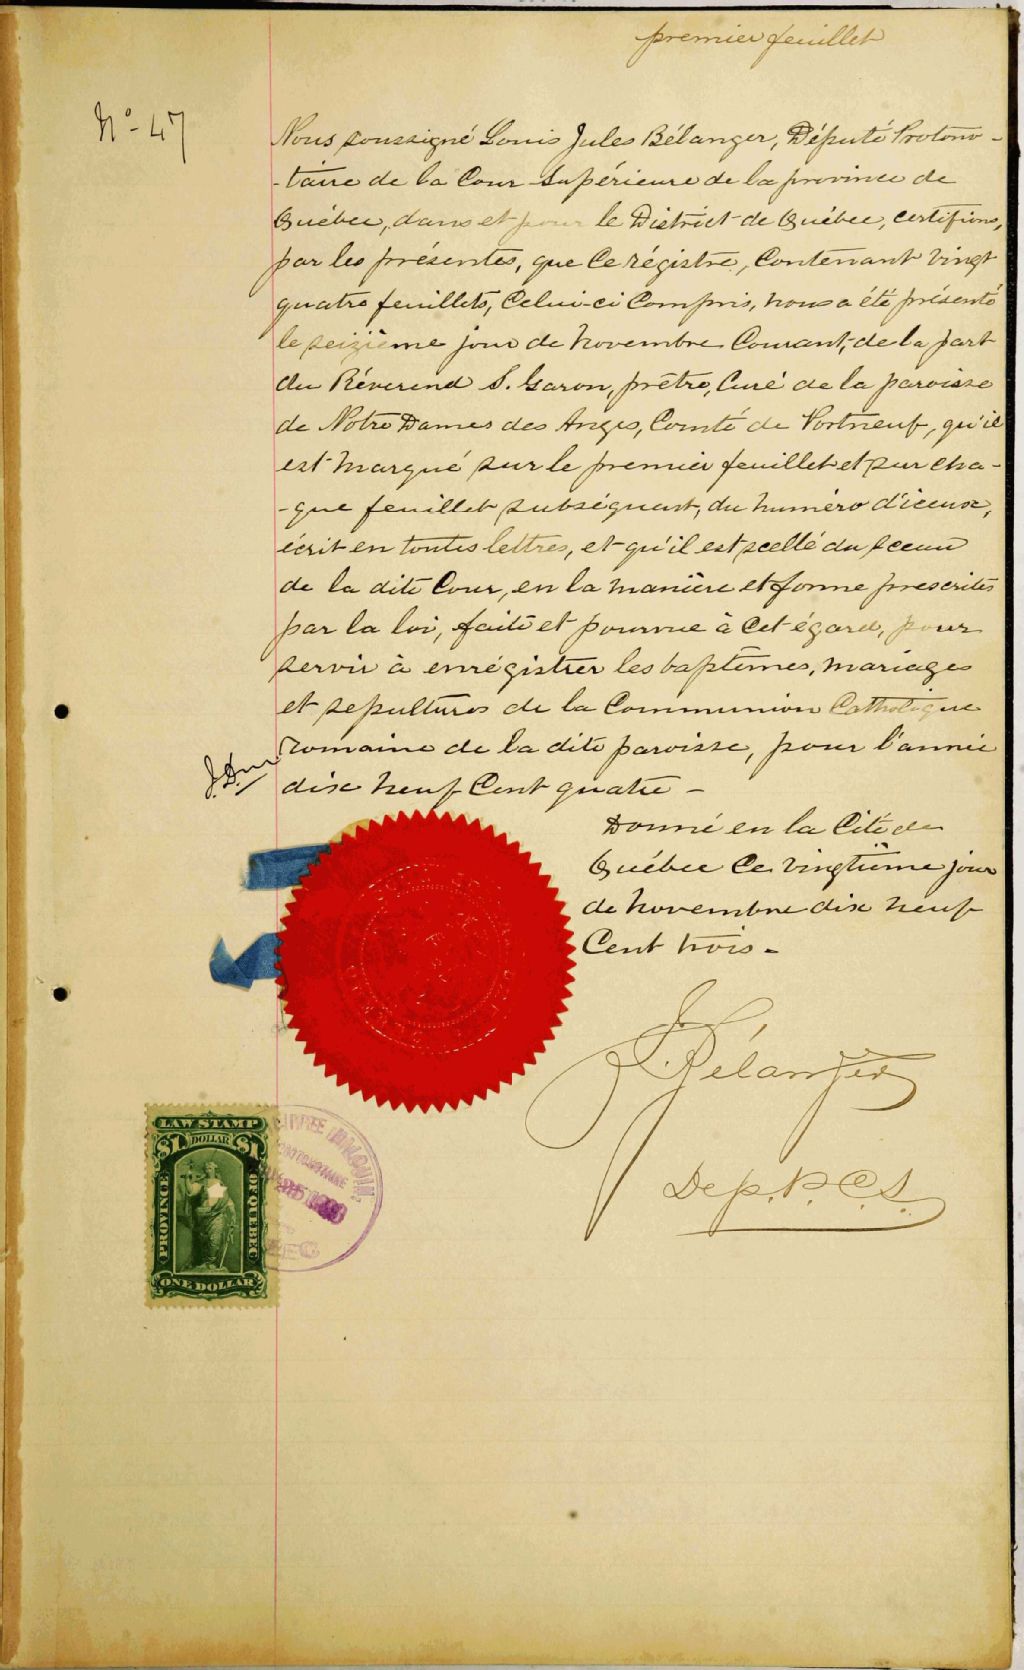 premier feuillet
No- 47
Nous soussigné Louis Jules Bélanger, Député Protono-
-taire de la Cour Supérieure de la province de
Québec, dans et pour le District de Québec, certifions,
par les présentes, que ce régistre, contenant vingt
quatre feuillets, celui-ci compris, nous a été présenté
le seizième jour de novembre courant, de la part
du Révérend S. Garon, prêtre, Curé de la paroisse
de Notre Dames des Anges, Comté de Portneuf, qu'il
est marqué sur le premier feuillet et sur cha-
-que feuillet subséquent, du numéro d'iceux,
écrit en toutes lettres, et qu'il est scellé du sceau
de la dite Cour, en la manière et forme prescrites
par la loi, faite et pourvue à cet égard, pour
servir à enrégistrer les baptêmes, mariages
et sépultures de la Communion Catholique
romaine de la dite paroisse, pour l'année
dix neuf Cent quatre -
Donné en la Cité de
Québec ce vingtième jour
de novembre dix neuf
Cent trois -
Bélanger
Dep. P. C. S.
LAW STAMP
$1 DOLLAR $1
PROVINCE OF QUEBEC
ONE DOLLAR
PROTONOTAIRE